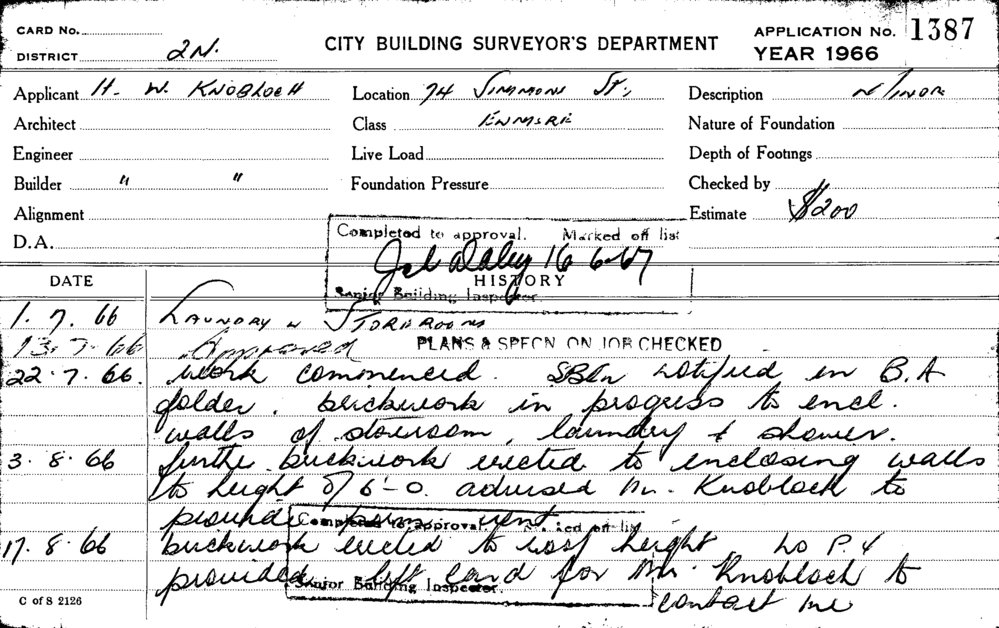 CARD No.
DISTRICT 2N.
CITY BUILDING SURVEYOR'S DEPARTMENT
APPLICATION No. 1387
YEAR 1966
Applicant H. W. KNOBLOCH
Location 74 SIMMONS ST,
Description MINOR
Architect
Class ENMORE
Nature of Foundation
Engineer
Live Load
Depth of Footings
Builder " "
Foundation Pressure
Checked by
Alignment
Estimate $200
D.A.
Completed to approval. Marked off list
16 6-67
Senior Building Inspector.
DATE
HISTORY
1. 7. 66 LAUNDRY & STOREROOMS
13. 7. 66 Approved PLANS & SPECN ON JOB CHECKED
22. 7. 66. work commenced. notified in B.A
folder. brickwork in progress to encl.
walls of storeroom, laundry & shower.
3. 8. 66 brickwork erected to enclosing walls
to height of 6'-0. advised Mr. Knobloch to
provide vent
Completed to approval. Marked off list
17. 8. 66 brickwork erected to roof height. no P.
provided. left card for Mr. Knobloch to
Senior Building Inspector.
contact me
C of S 2126